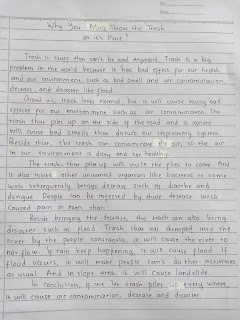 Why You Must Throw the Trash
as it's Place?
Trash is stuff that can't be used anymore. Trash is a big
problem in the world because it has bad effect for our health
and our environment, such as bad smell and air contamination,
desease, and disaster like flood.
Around us, trash looks normal, but it will cause many bad
effects for our environment, such as air contamination. The
trash that piles up on the side of the road and is rotten
will cause bad smells than disturb our respiratory system.
Beside that, the trash can contaminate the air, so the air
in our environment is dirty and not healthy.
The trash that piles up will invite the flies to come. And
it also invite other unwanted organism like bacteria to come
which subsequently brings desease such as diarrhe and
dengue. People can be infected by those desease which
caused pain or even than.
Beside bringing the desease, the trash can also bring
disaster such as flood. Trash that was dumped into the
river by the people constantly, it will cause the river to
not flow. If rain keep happening, it will cause flood. If
flood occurs, it will make people can't do their activities
as usual. And in slope area, it will cause landslide.
In conclusion, if we let trash piles up every where,
it will cause air contamination, desease and disaster.